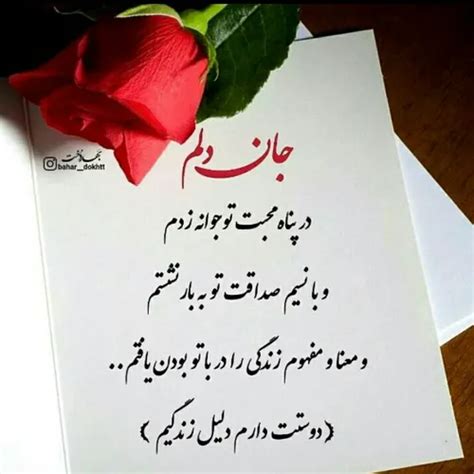 جان دلم
بهار دخت
bahar_dokhtt
در پناه محبت تو جوانه زدم
و با نسیم صداقت تو به بار نشستم
و معنا و مفهوم زندگی را در با تو بودن یافتم..
(دوستت دارم دلیل زندگیم)